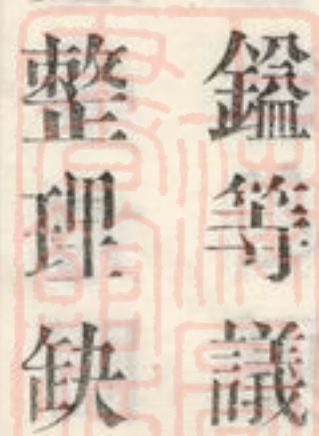 鎰等議
整理缺